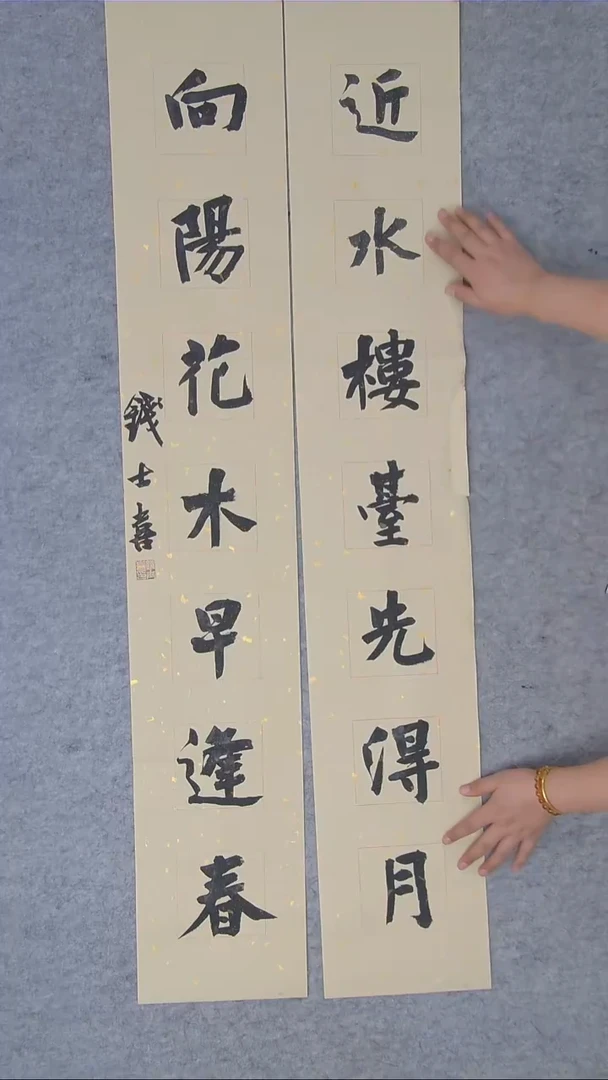 近水樓臺先得月
向陽花木早逢春
錢士喜